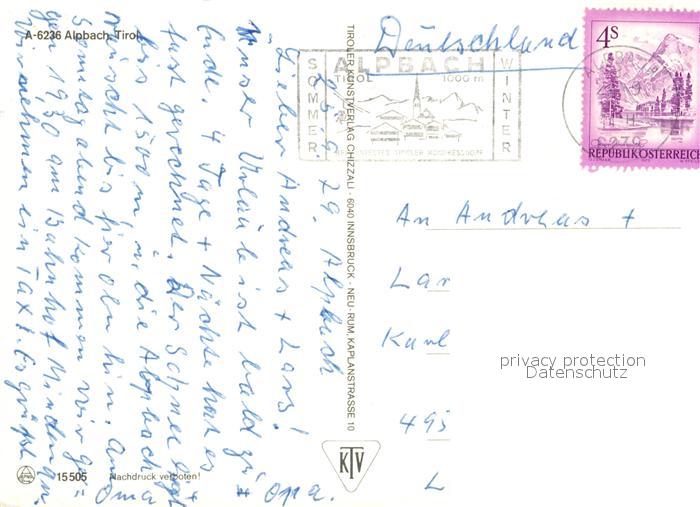 A-6236 Alpbach, Tirol
25.9.79. Alpbach
Lieber Andreas + Lars!
Unser Urlaub ist bald zu
Ende. 4 Tage + Nächte hat es
fast geregnet. Der Schnee liegt
bis 1500 m, die Alpbach
rauscht bis hier oben hin. Am
Sonntag abend kommen wir ge-
gen 1930 am Bahnhof Minden an.
Wir nehmen ein Taxi. Es grüßt
Oma + Opa.
15505 Nachdruck verboten!
TIROLER KUNSTVERLAG CHIZZALI · 6040 INNSBRUCK - NEU-RUM, KAPLANSTRASSE 10
KTV
SOMMER
ALPBACH
TIROL 1000 m
WINTER
4 S
REPUBLIK ÖSTERREICH
Deutschland
An Andreas +
Lar
Karl
495
L
privacy protection
Datenschutz